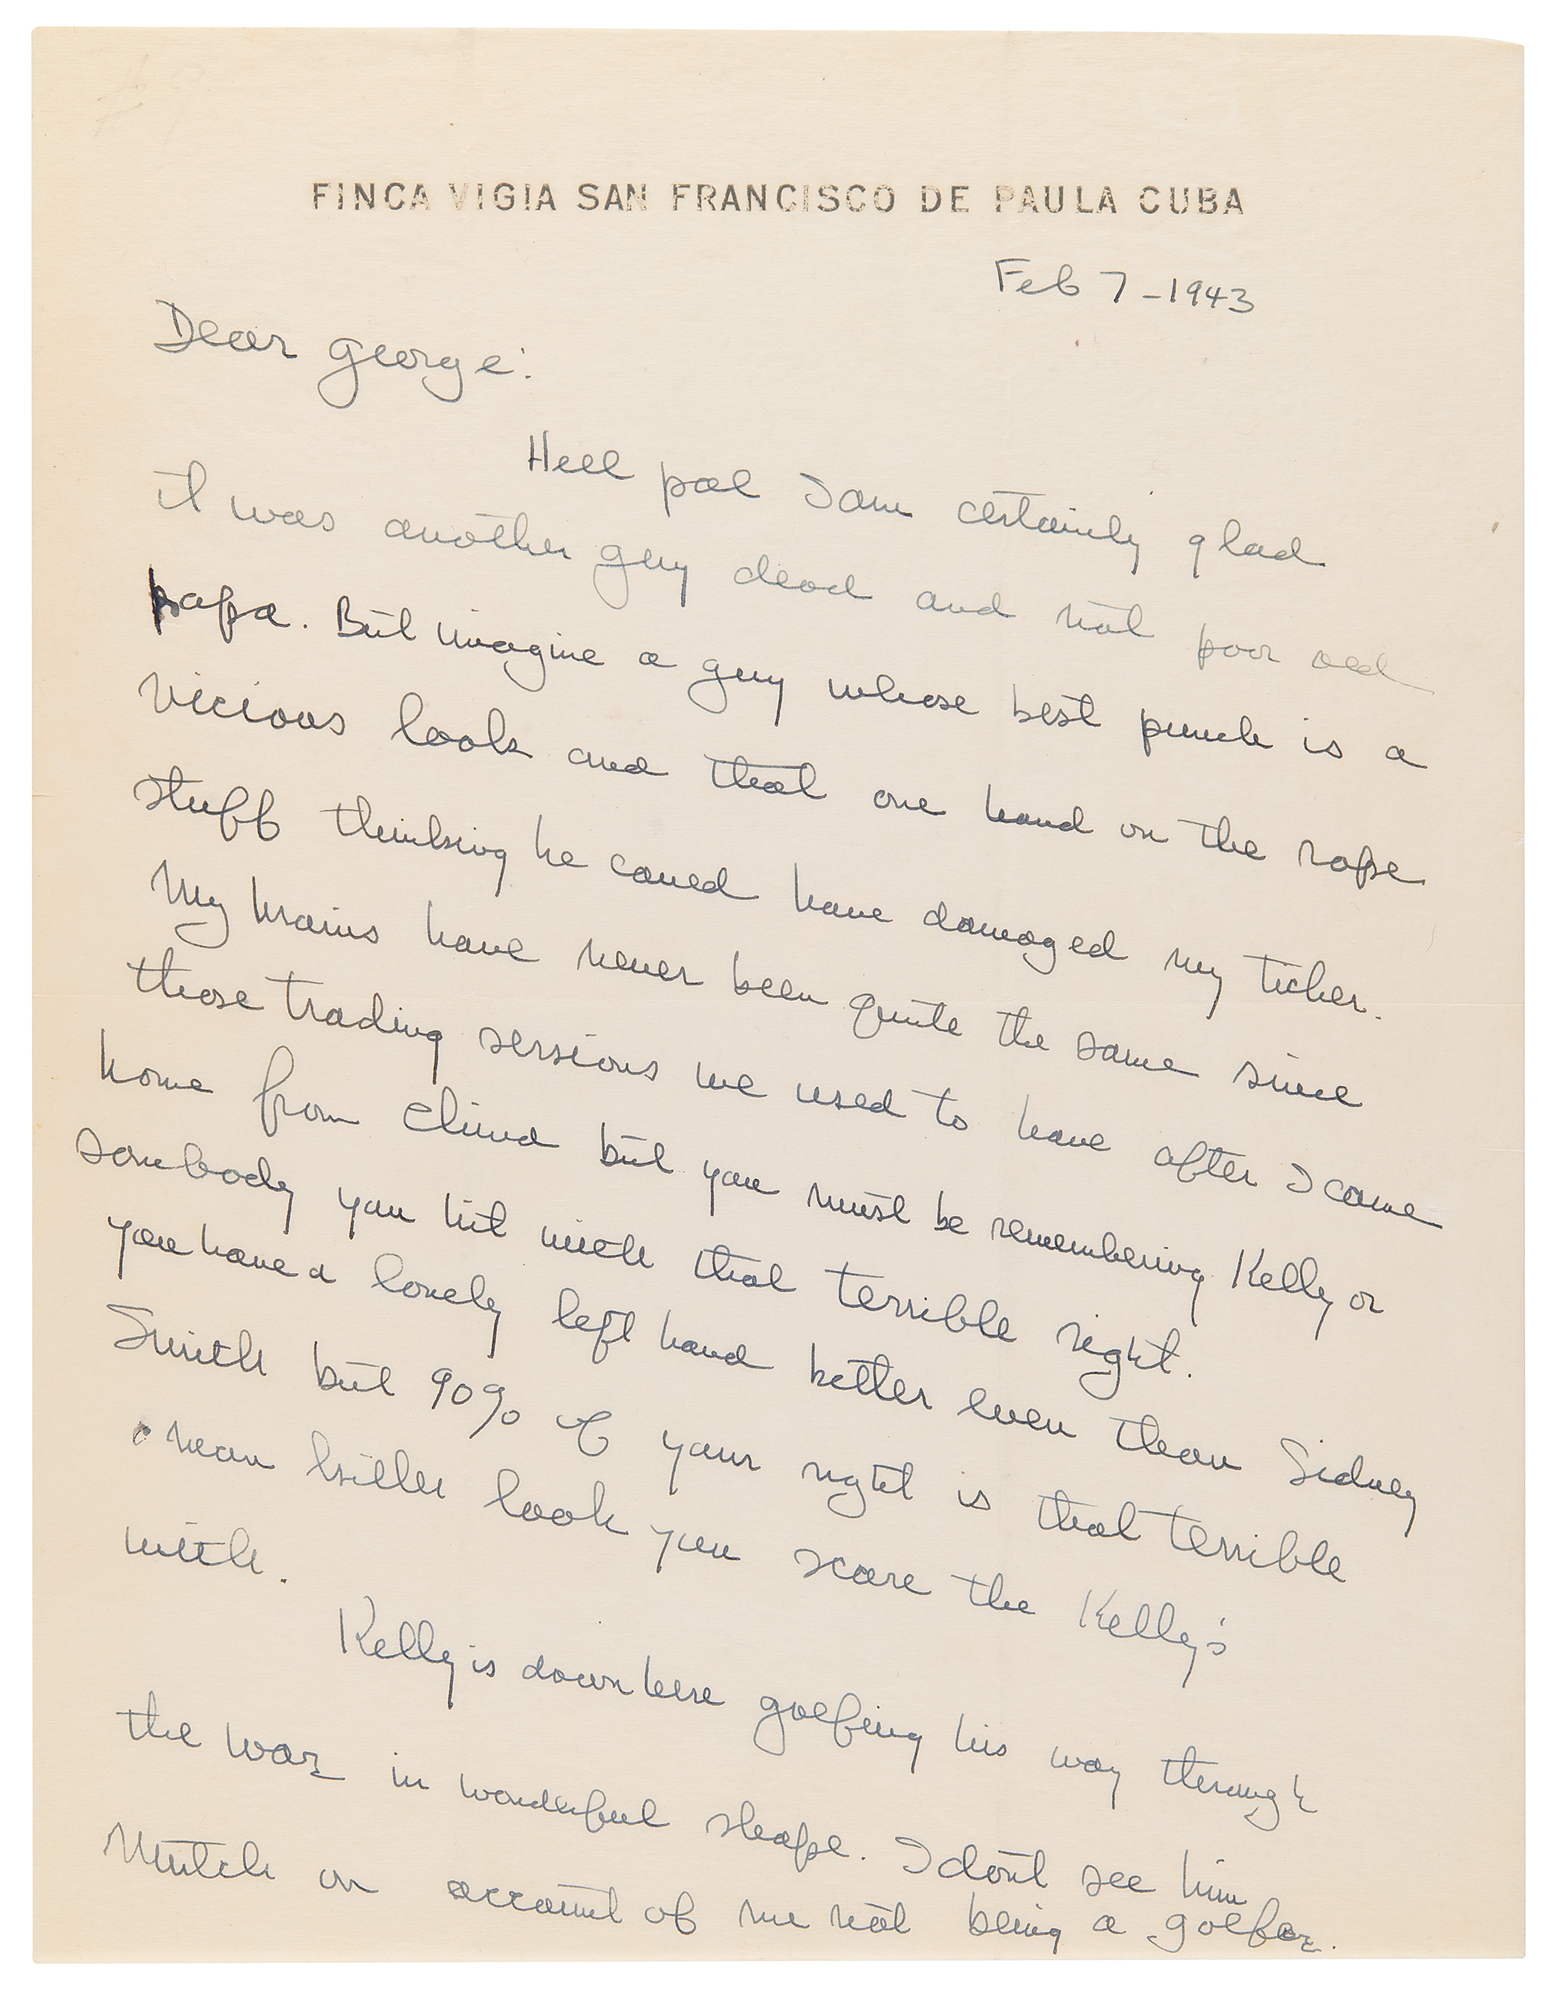 FINCA VIGIA SAN FRANCISCO DE PAULA CUBA
Feb 7-1943
Dear George:
Hell pal I am certainly glad
it was another guy dead and not poor old
papa. But imagine a guy whose best punch is a
vicious look and that one hand on the rope
stuff thinking he could have damaged my ticker.
My brains have never been quite the same since
those trading sessions we used to have after I came
home from China but you must be remembering Kelly or
somebody you hit with that terrible right.
you have a lovely left hand better even than Sidney
Smith but 90% of your right is that terrible
mean killer look you scare the Kelly's
with.
Kelly is down here golfing his way through
the war in wonderful shape. I dont see him
Mutch on account of me not being a golfer.